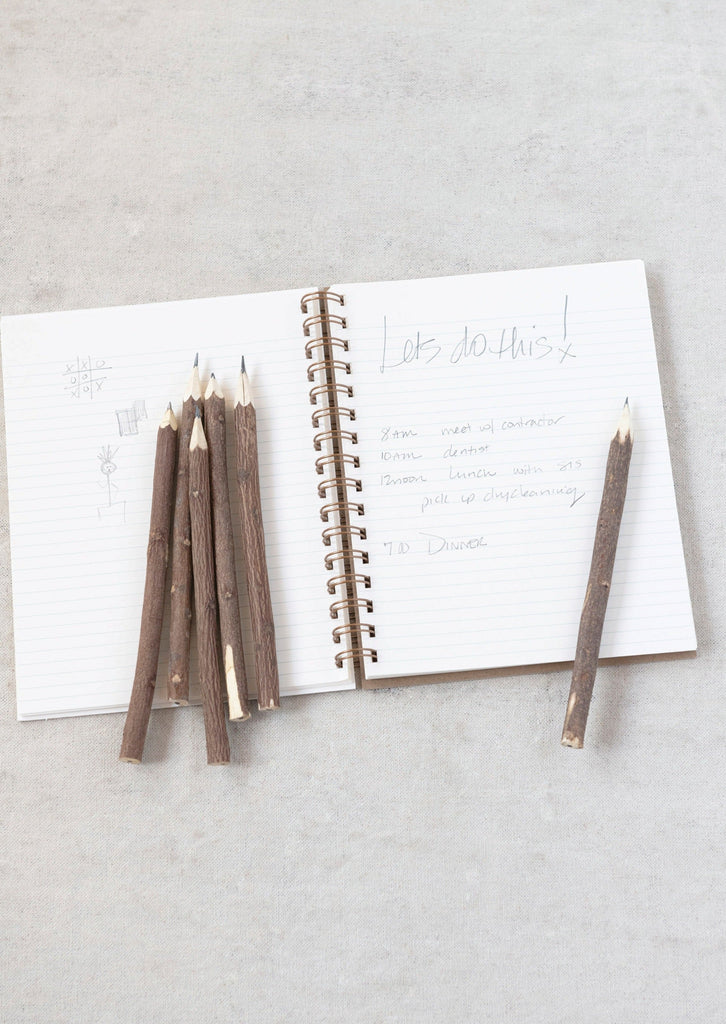 x x o
o o
x o x
Lets do this!
x
8 AM meet w/ contractor
10 AM dentist
12 noon lunch with sis
pick up drycleaning
7 00 DINNER